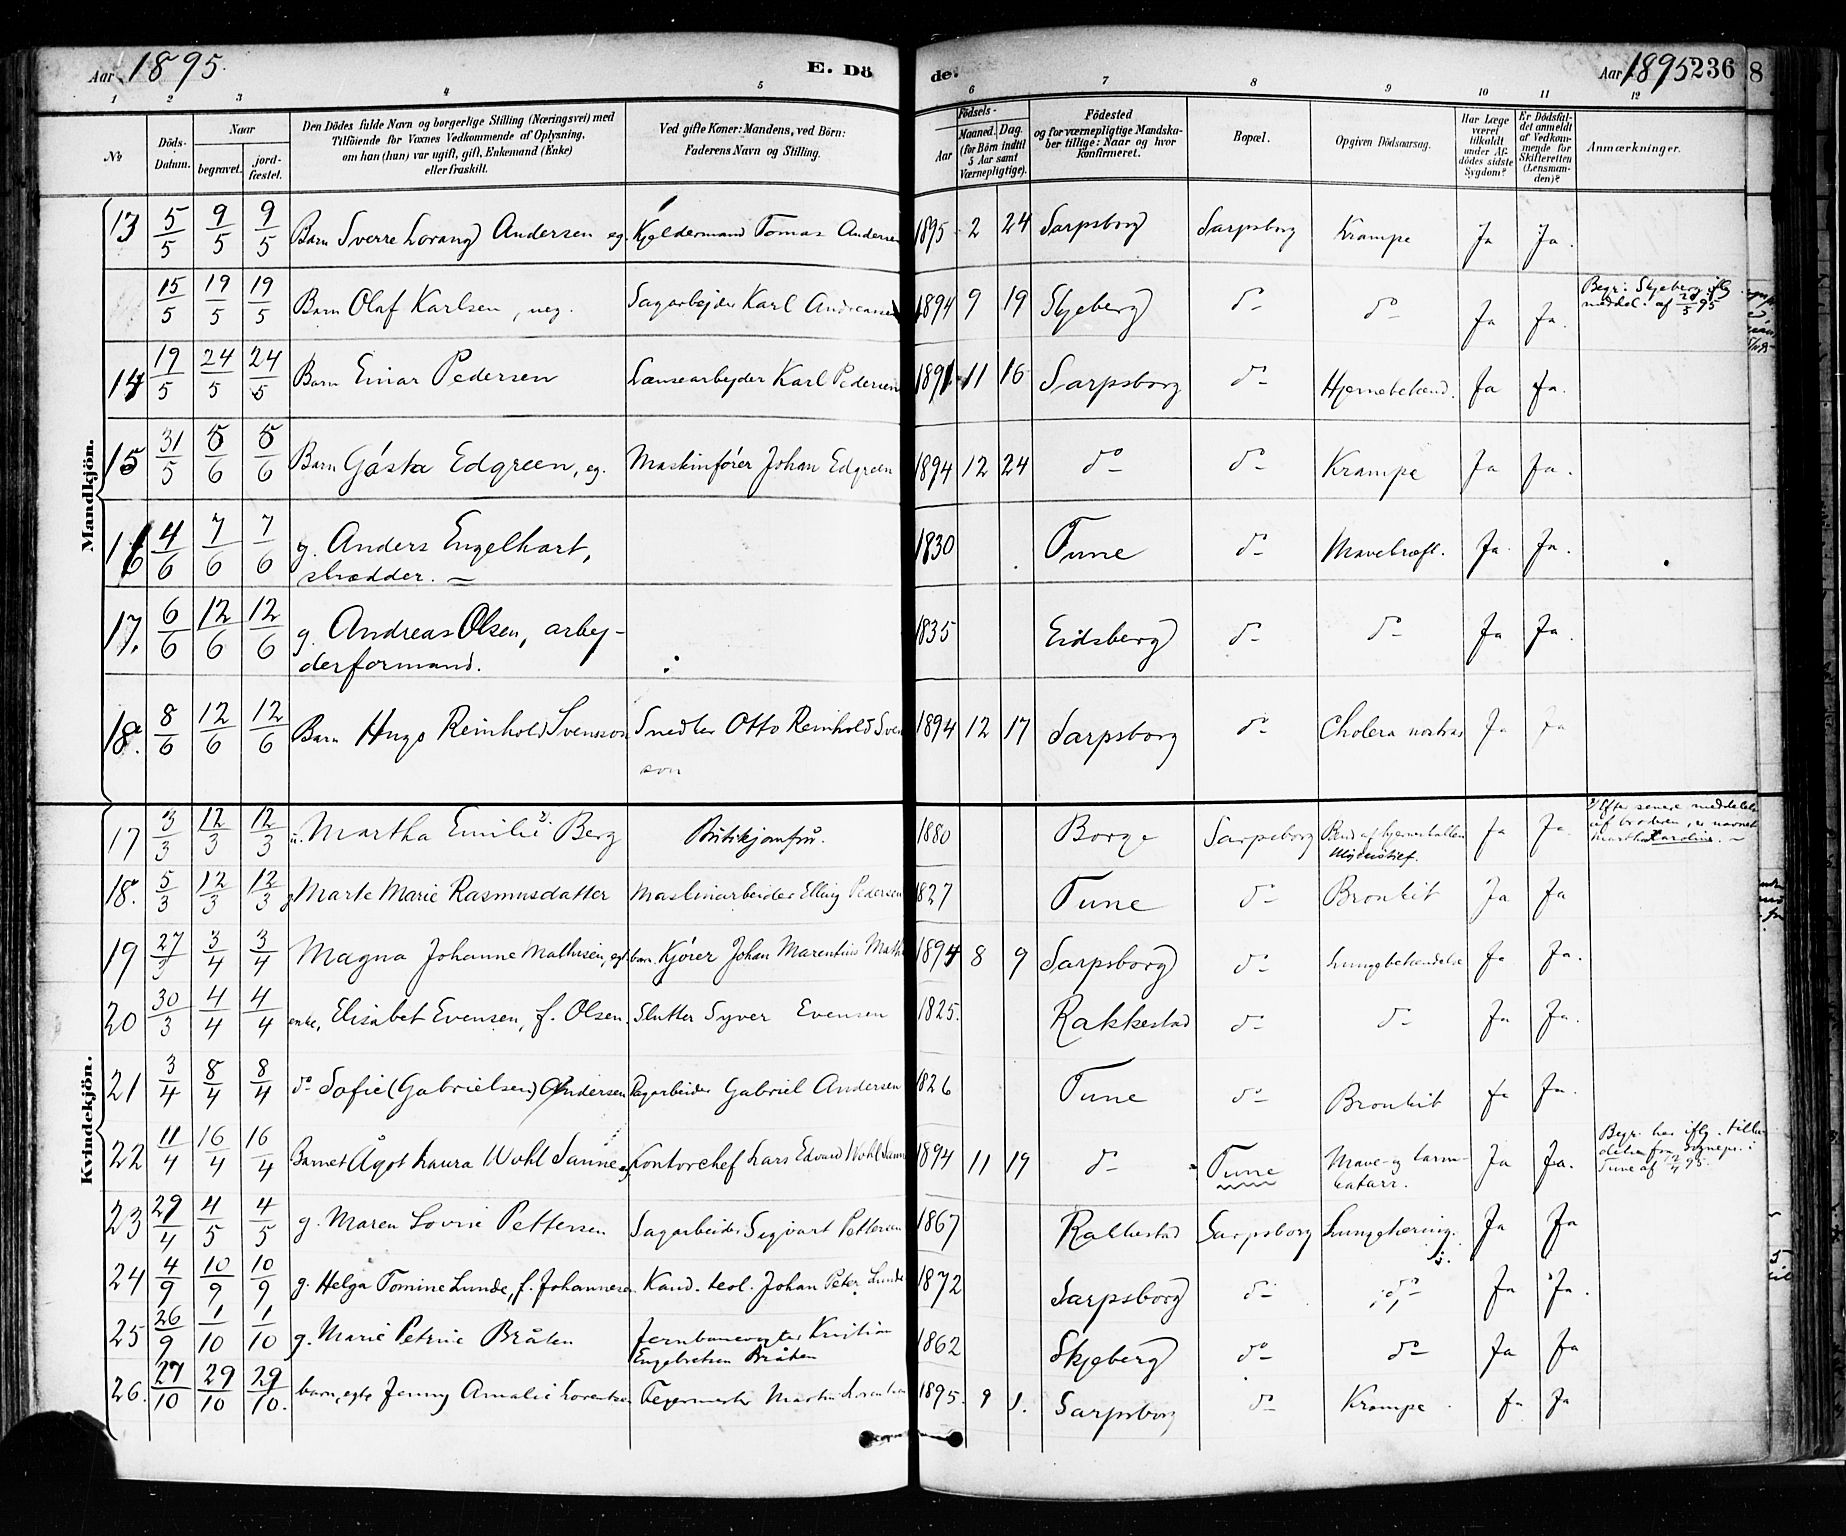 Aar 1895. E. Dö de. Aar 1895 236 8
1 2 3 4 5 6 7 8 9 10 11 12
No
Döds-Datum.
Naar
begravet.
jord-fæstet.
Den Dödes fulde Navn og borgerlige Stilling (Næringsvei) med
Tilföiende för Voxnes Vedkommende af Oplysning,
om han (hun) var ugift, gift, Enkemand (Enke)
eller fraskilt.
Ved gifte Koner: Mandens, ved Börn:
Faderens Navn og Stilling.
Födsels-
Aar
Maaned. Dag.
(for Börn indtil
5 Aar samt
Værnepligtige).
Födested
og for værnepligtige Mandska-
ber tillige: Naar og hvor
Konfirmeret.
Bopæl.
Opgiven Dödsaarsag.
Har Læge
været
tilkaldt
under Af-
dödes sidste
Sygdom?
Er Dödsfal-
det anmeldt
af Vedkom-
mende for
Skifteretten
(Lensman-
den)?
Anmærkninger.
Mandkjön.
13 5/5 9/5 9/5 Barn Sverre Lorang Andersen eg. Kjeldermand Tomas Andersen 1895 2 24 Sarpsborg Sarpsborg Krampe Ja Ja.
15/5 19/5 19/5 Barn Olaf Karlsen, ueg. Sagarbejder Karl Andreassen 1894 9 19 Skjeberg do do Ja Ja. Begr. i Skjeberg iflg
meddel. af 20/5 95
14 19/5 24/5 24/5 Barn Einar Pedersen Lænsearbejder Karl Pedersen 1891 11 16 Sarpsborg do Hjernebetænd. Ja Ja.
15 31/5 5/6 5/6 Barn Gösta Edgreen, eg. Maskinfører Johan Edgreen 1894 12 24 do do Krampe Ja Ja.
16 4/6 7/6 7/6 g. Anders Engelhart,
skrædder. 1830 Tune do Mavekræft. Ja Ja.
17. 6/6 12/6 12/6 g. Andreas Olsen, arbej-
derformand. 1835 Eidsberg do do Ja Ja.
18. 8/6 12/6 12/6 Barn Hugo Reinhold Svensson Snedker Otto Reinhold Sven
son 1894 12 17 Sarpsborg do Cholera nostras Ja Ja
Kvindekjön.
17 3/3 12/3 12/3 u. Martha Emilie Berg Butikjomfru. 1880 Borge Sarpsborg Ja Ja Efter senere meddelelse
af broderen, er navnet
Martha Karoline.
18. 5/3 12/3 12/3 g Marte Marie Rasmusdatter Maskinarbeider Elling Pedersen 1827 Tune do Bronkit Ja Ja
19 27/3 3/4 3/4 Magna Johanne Mathisen, egt. barn. Kjører Johan Marentius Math 1894 8 9 Sarpsborg do Lungebetændelse Ja Ja.
20 30/3 4/4 4/4 enke, Elisabet Evensen, f. Olsen. Slutter Syver Evensen 1825. Rakkestad do do Ja Ja.
21 3/4 8/4 8/4 do Sofie (Gabrielsen) Andersen Sagarbeider Gabriel Andersen 1826 Tune do Bronkit Ja Ja.
22 11/4 16/4 16/4 Barnet Ågot Laura Wohl Sanne eg Kontorchef Lars Edvard Wohl Sanne 1894 11 19 do Tune Mave- og tarm-
katarr. Ja Ja. Begr. her iflg. tilla
delse fra sognepr. i
Tune af 12/4 95.
23 27/4 4/5 4/5 g. Maren Lovise Pettersen Sagarbeider Sigvart Pettersen 1867 Rakkestad Sarpsborg Lungetæring. Ja Ja
24 4/9 10/9 10/9 g. Helga Tomine Lunde, f. Johannesen Kand. teol. Johan Peter Lunde 1872 Sarpsborg do do Ja Ja.
25 26/9 1/10 1/10 g. Marie Petrine Bråten Jernbanevogter Kristian
Engebretsen Bråten 1862 Skjeberg do do Ja Ja
26. 27/10 29/10 29/10. barn, egte Jenny Amalie Lorentsen Feiermester Martin Lorentsen 1895. 9 1. Sarpsborg do Krampe Ja Ja